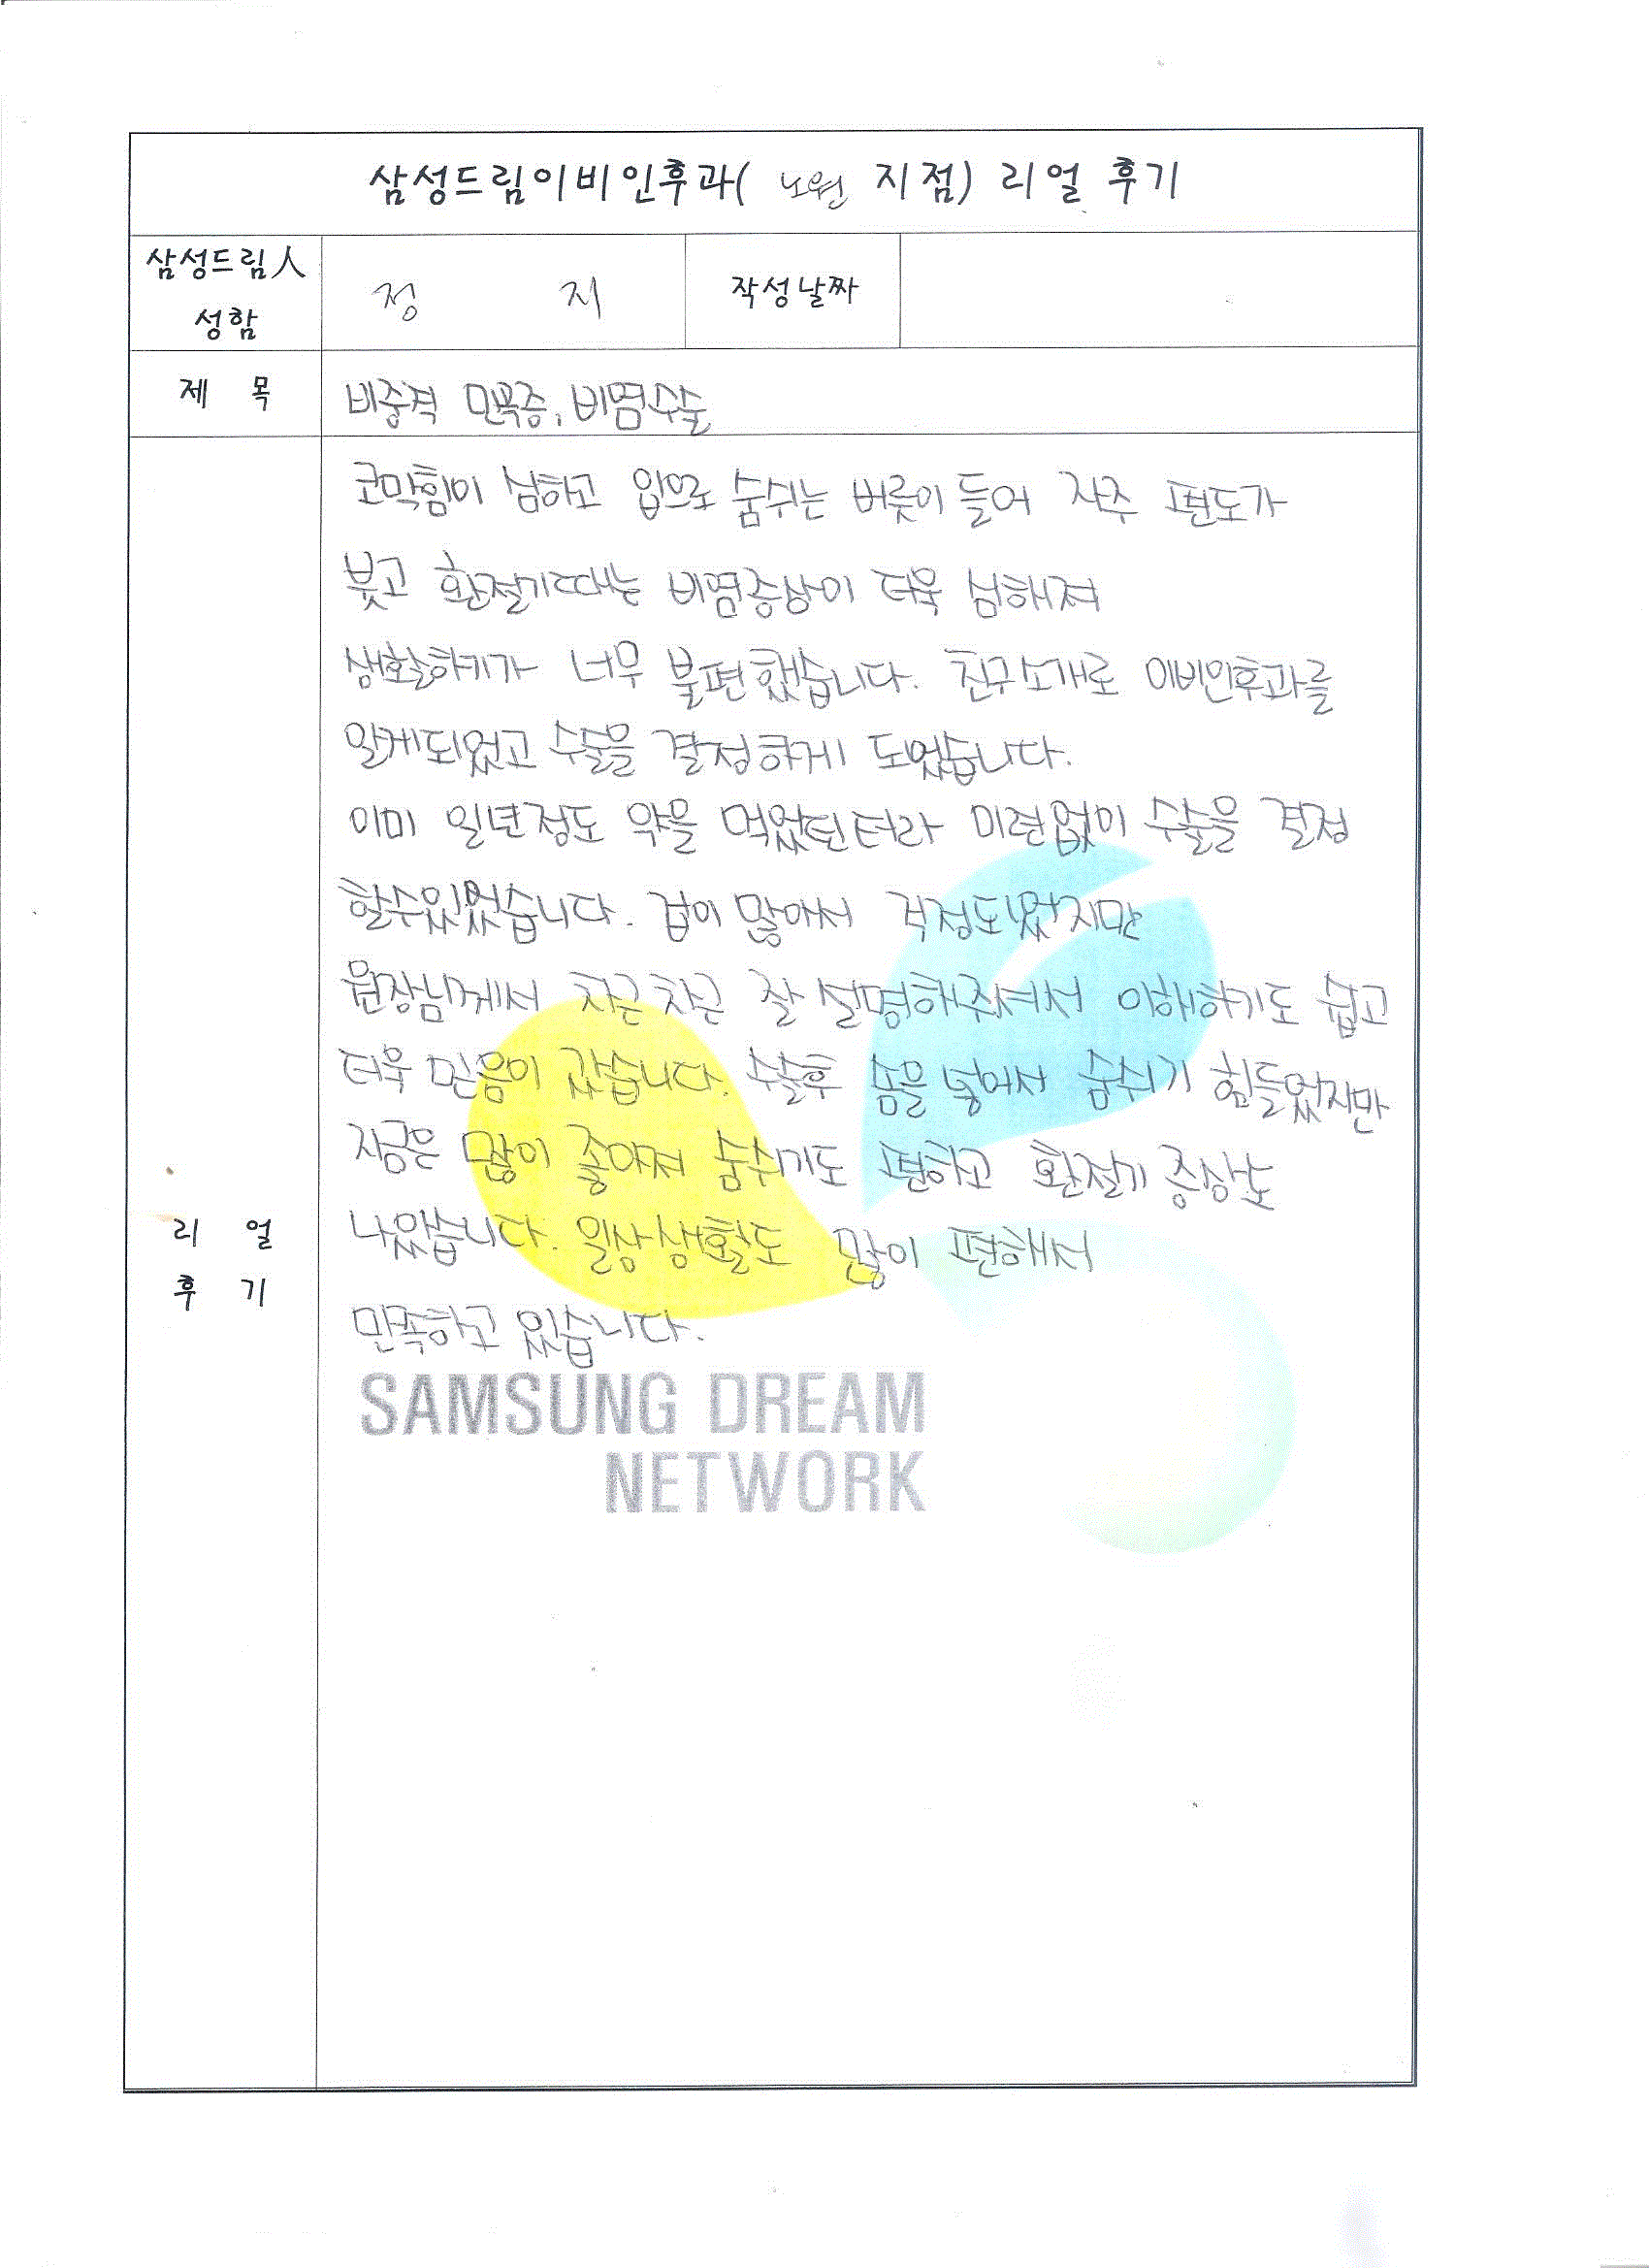 삼성드림이비인후과( 노원 지점) 리얼 후기
삼성드림人
성함
정 지
작성날짜
제 목
비중격 만곡증, 비염수술
코막힘이 심하고 입으로 숨쉬는 버릇이 들어 자주 편도가
붓고 환절기때는 비염증상이 더욱 심해져
생활하기가 너무 불편했습니다. 친구소개로 이비인후과를
알게되었고 수술을 결정하게 되었습니다.
이미 일년정도 약을 먹었던터라 미련없이 수술을 결정
할수있었습니다. 겁이 많아서 걱정도됐지만
원장님께서 차근차근 잘 설명해주셔서 이해하기도 쉽고
더욱 믿음이 갔습니다. 수술후 솜을 넣어서 숨쉬기 힘들었지만
지금은 많이 좋아져 숨쉬기도 편하고 환절기 증상도
나았습니다. 일상생활도 많이 편해서
만족하고 있습니다.
리 얼
후 기
SAMSUNG DREAM
NETWORK